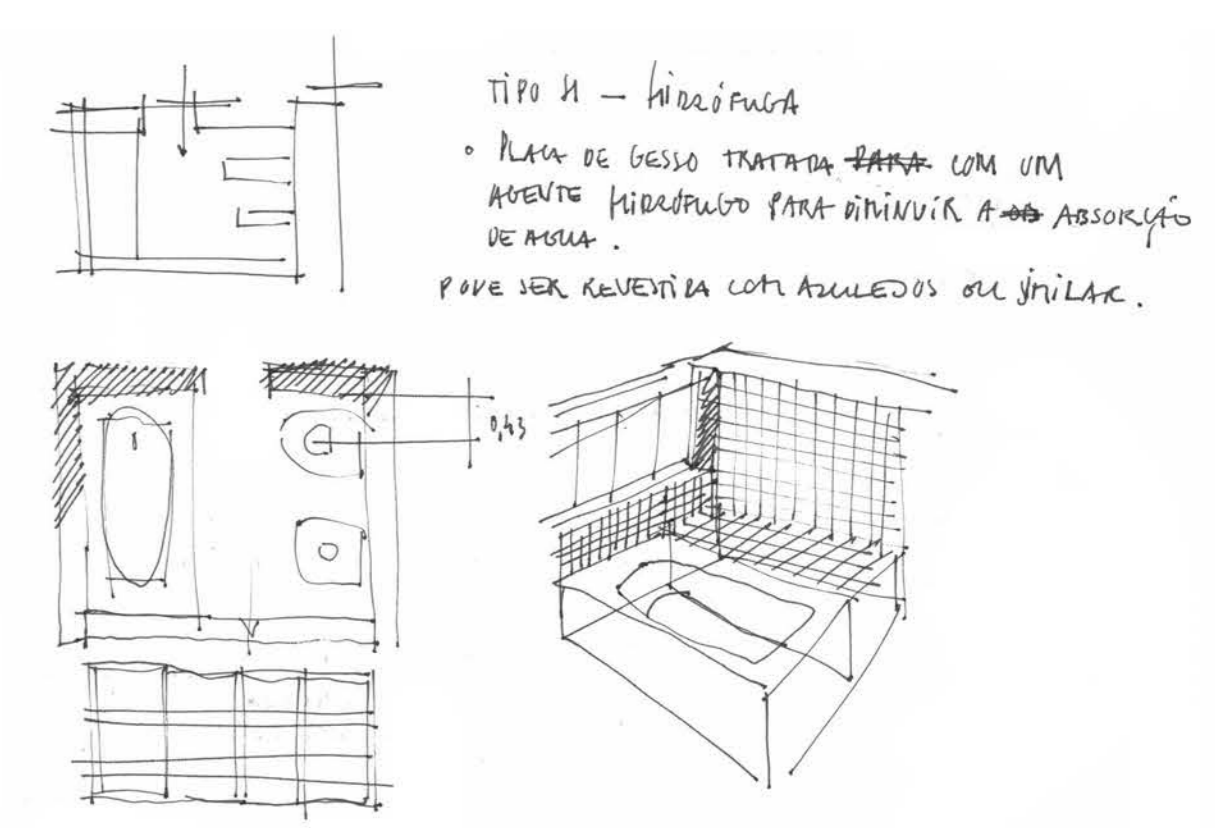 TIPO H — HIDRÓFUGA
• PLACA DE GESSO TRATADA PARA COM UM
AGENTE HIDRÓFUGO PARA DIMINUIR A ABSORÇÃO
DE AGUA.
PODE SER REVESTIDA COM AZULEJOS OU SIMILAR.
0,43